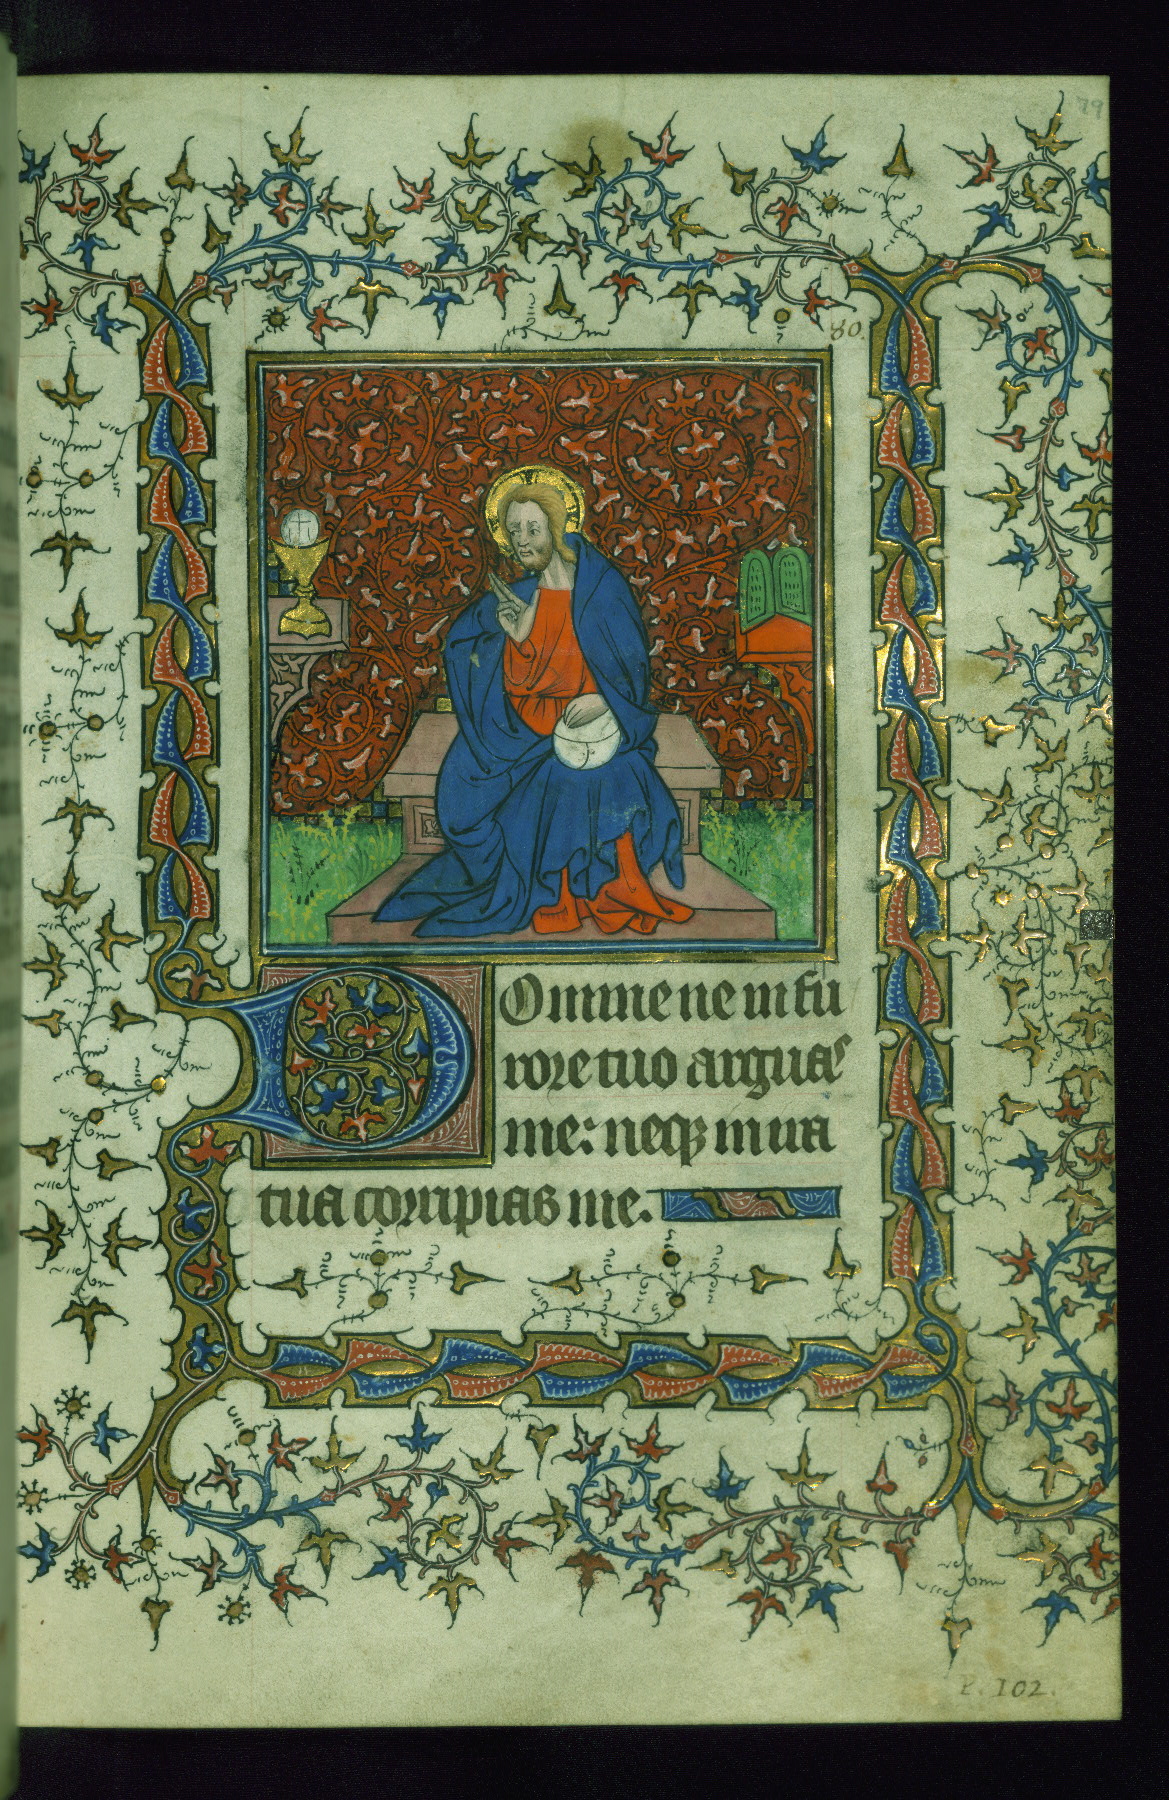 79
80.
Domine ne in fu
rore tuo arguas
me: neq₃ in ira
tua corripias me.
P. 102.